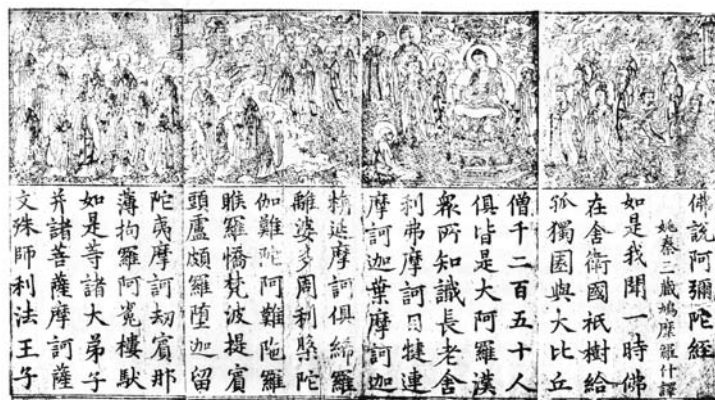 佛說阿彌陀經
姚秦三藏鳩摩羅什譯
如是我聞一時佛
在舍衛國祇樹給
孤獨園與大比丘
僧千二百五十人
俱皆是大阿羅漢
衆所知識長老舍
利弗摩訶目犍連
摩訶迦葉摩訶迦
旃延摩訶俱絺羅
離婆多周利槃陀
伽難陀阿難陁羅
睺羅憍梵波提賓
頭盧頗羅墮迦留
陀夷摩訶劫賓那
薄拘羅阿㝹樓馱
如是等諸大弟子
并諸菩薩摩訶薩
文殊師利法王子